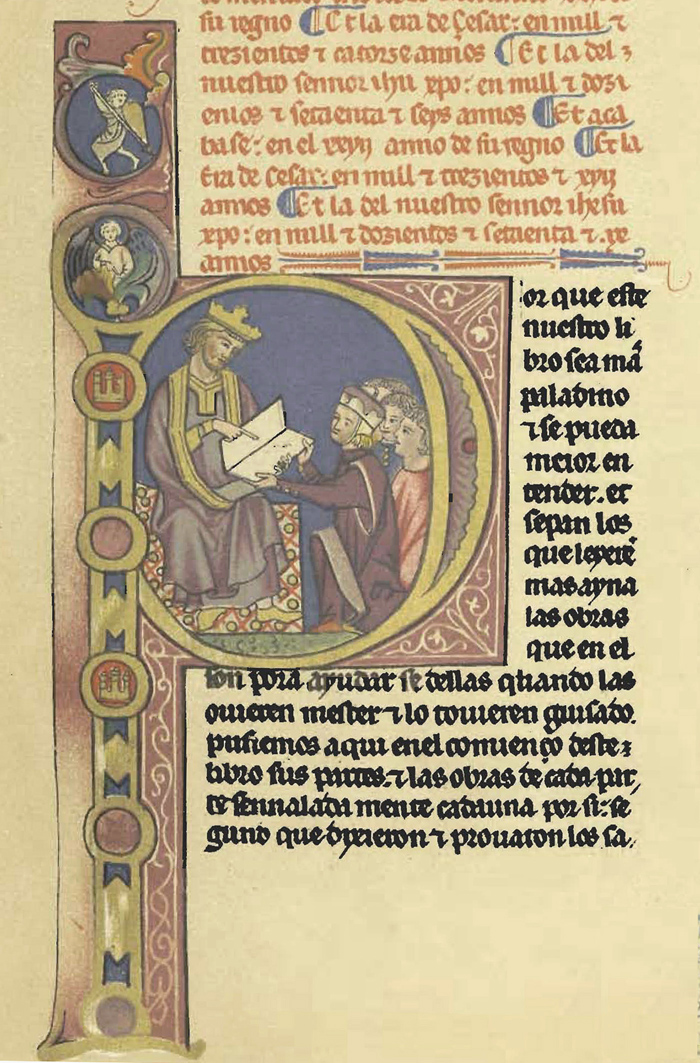 su regno ¶ Et la era de Cesar: en mill ⁊
trezientos ⁊ catorze annos ¶ Et la del
nuestro sennor ihu xpo: en mill ⁊ dozi
entos ⁊ setaenta ⁊ seys annos ¶ Et aca
base: en el xxvij anno de su regno ¶ Et la
Era de Cesar: en mill ⁊ trezientos ⁊ xvij
annos ¶ Et la del nuestro sennor ihesu
xpo: en mill ⁊ dozientos ⁊ setaenta ⁊ .ix.
annos
Por que este
nuestro li
bro sea mas
paladino
⁊ se pueda
meior en
tender. et
sepan los
que leyerẽ
mas ayna
las obras
que en el
son pora ayudar se dellas quando las
ouieren mester ⁊ lo touieren guisado.
pusiemos aqui en el comienço deste
libro sus partes. ⁊ las obras de cada par
te sennalada mente cada una por si: se
gund que dixieron ⁊ prouaron los sa